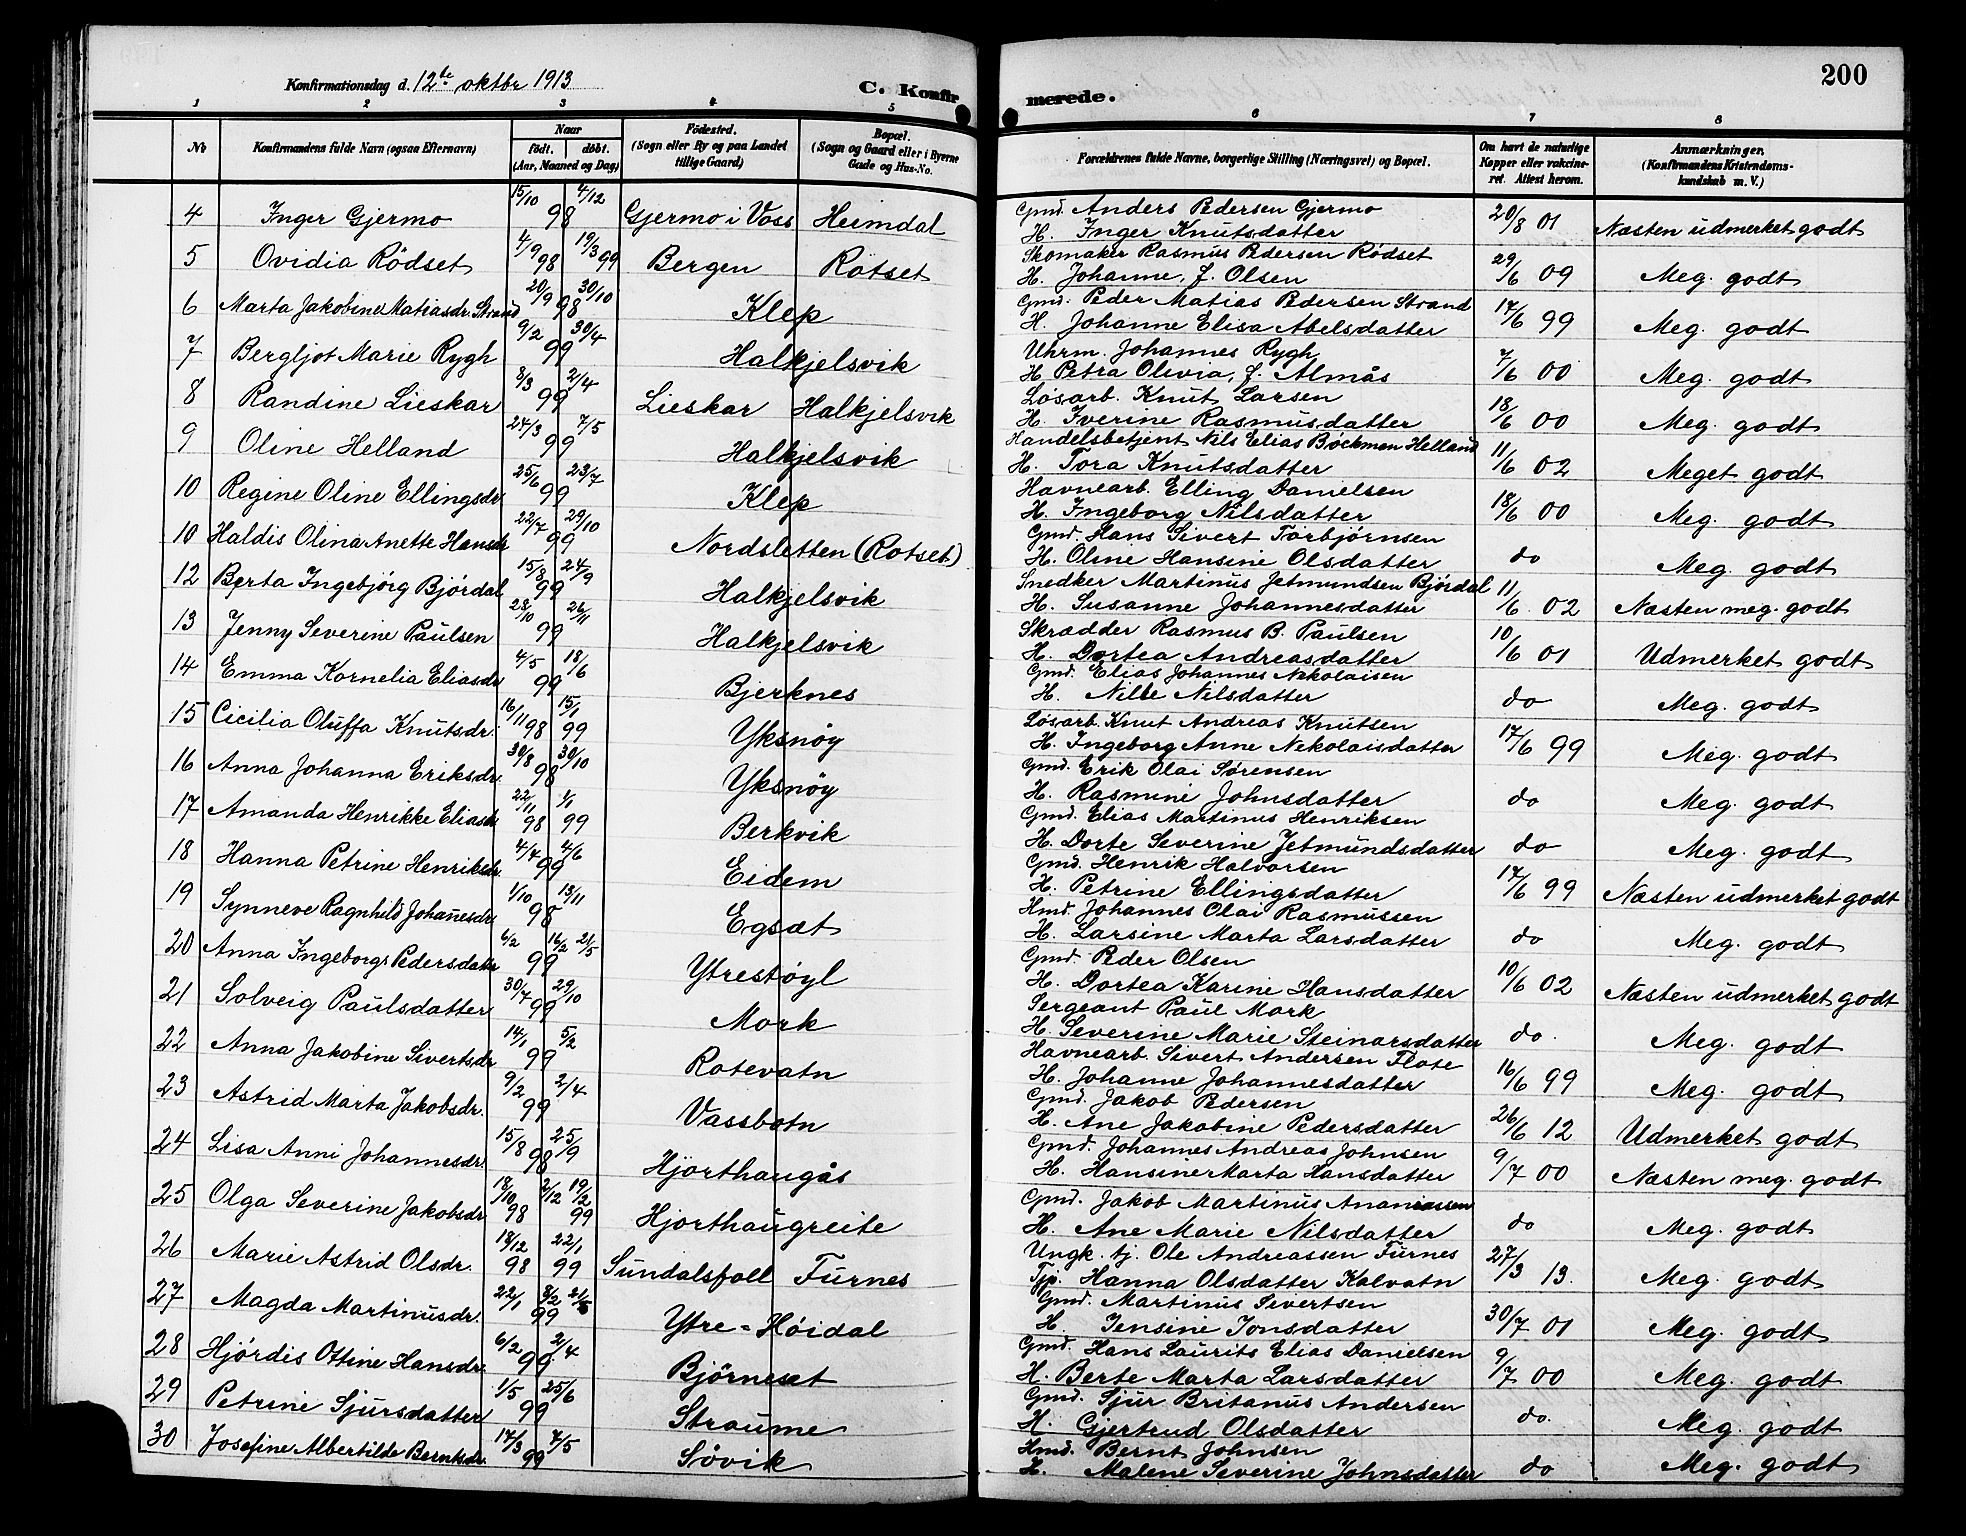 Konfirmationsdag d. 12te oktbr 1913
C. Konfirmerede.
200
1 2 3 4 5 6 7 8
No
Konfirmandens fulde Navn (ogsaa Efternavn)
Naar
født. døbt.
(Aar, Maaned og Dag)
Fødested.
(Sogn eller By og paa Landet
tillige Gaard)
Bopæl.
(Sogn og Gaard eller i Byerne
Gade og Hus-No.
Forældrenes fulde Navne, borgerlige Stilling (Næringsvei) og Bopæl.
Om havt de naturlige
Kopper eller vakcine-
ret. Attest herom.
Anmærkninger.
(Konfirmandens Kristendoms-
kundskab m. V.)
4 Inger Gjermo 15/10 4/12 98 Gjermo i Voss Heimdal Gmd. Anders Pedersen Gjermo
H. Inger Knutsdatter 20/8 01 Næsten udmerket godt
5 Ovidia Rödset 4/9 98 19/3 99 Bergen Rotset Skomaker Rasmus Pedersen Rødset
H. Johanne, f. Olsen 29/6 09 Meg. godt
6 Marta Jakobine Matiasdr. Strand 20/9 30/10 98 Klep Gmd. Peder Matias Pedersen Strand
H. Johanne Elisa Abelsdatter 17/6 99 Meg. godt
7 Bergljot Marie Rygh 9/2 30/4 99 Halkjelsvik Uhrm. Johannes Rygh
H Petra Olivia, f. Almås 7/6 00 Meg. godt
8 Randine Lieskar 8/3 2/4 99 Lieskar Halkjelsvik Løsarb. Knut Larsen
H. Iverine Rasmusdatter 18/6 00 Meg. godt
9 Oline Helland 24/3 7/5 99 Halkjelsvik Handelsbetjent Nils Elias Bøckman Helland
H. Tora Knutsdatter 11/6 02 Meget godt
10 Regine Oline Ellingsdr. 25/6 23/7 99 Klep Havnearb. Elling Danielsen
H. Ingeborg Nilsdatter 18/6 00 Meg. godt
10 Haldis Olina Anette Hansdr 22/7 29/10 99 Nordsletten (Rotset) Gmd. Hans Sivert Torbjørnsen
H. Oline Hansine Olsdatter do Meg. godt
12 Berta Ingebjörg Björdal 15/8 24/9 99 Halkjelsvik Snedker Martinus Jetmundsen Björdal
H. Susanne Johannesdatter 11/6 02 Næsten meg. godt
13 Jenny Severine Paulsen 28/10 26/11 99 Halkjelsvik Skrædder Rasmus B. Paulsen
H. Dortea Andreasdatter 10/6 01 Udmerket godt
14 Emma Kornelia Eliasdr 4/5 18/6 99 Bjerknes Gmd. Elias Johannes Nikolaisen
H. Nille Nilsdatter do Meg. godt
15 Cicilia Oluffa Knutsdr. 16/11 98 15/1 99 Yksnöy Løsarb. Knut Andreas Knutsen
H. Ingeborg Anne Nikolaisdatter 17/6 99 Meg. godt
16 Anna Johanna Eriksdr. 30/8 30/10 98 Yksnöy Gmd. Erik Olai Sørensen
H. Rasmine Johnsdatter do Meg. godt
17 Amanda Henrikke Eliasdr 22/11 98 1/1 99 Berkvik Gmd. Elias Martinus Henriksen
H. Dorte Severine Jetmundsdatter do Meg. godt
18 Hanna Petrine Henriksdr. 4/4 4/6 99 Eidem Gmd. Henrik Halvorsen
H. Petrine Ellingsdatter 17/6 99 Næsten udmerket godt
19 Synneve Ragnhild Johanesdr 1/10 13/11 98 Egsæt Hmd. Johannes Olai Rasmussen
H. Larsine Marta Larsdatter do Meg. godt
20 Anna Ingeborg Pedersdatter 6/2 16/2 21/5 99 Ytrestöyl Gmd. Peder Olsen
H. Dortea Karine Hansdatter 10/6 02 Næsten udmerket godt
21 Solveig Paulsdatter 30/7 29/10 99 Mork Sergeant Paul Mork
H. Severine Marie Steinarsdatter do. Meg. godt
22 Anna Jakobine Sivertsdr 14/1 5/2 99 Rotevatn Havnearb. Sivert Andersen Flote
H. Johanne Johannesdatter 16/6 99 Meg. godt
23 Astrid Marta Jakobsdr. 9/2 2/4 99 Vassbotn Gmd. Jakob Pedersen
H. Ane Jakobine Pedersdatter 26/6 12 Udmerket godt
24 Lisa Anni Johannesdr. 15/8 25/9 98 Hjorthaugås Gmd. Johannes Andreas Johnsen
H. Hansine Marta Hansdatter 9/7 00 Næsten meg. godt
25 Olga Severine Jakobsdr 18/10 98 2/12 19/2 99 Hjorthaugreite Gmd. Jakob Martinus Ananiassen
H. Ane Marie Nilsdatter do Meg. godt
26 Marie Astrid Olsdr. 18/12 98 22/1 99 Sundalsfoll Furnes Ungk. tj. Ole Andreassen Furnes
Tjp. Hanna Olsdatter Kalvatn 27/3 13. Meg. godt
27 Magda Martinusdr. 22/1 3/2 21/5 99 Ytre-Höidal Gmd. Martinus Sivertsen
H. Jensine Jonsdatter 30/7 01 Meg. godt
28 Hjördis Ottine Hansdr. 6/2 2/4 99 Björneset Gmd. Hans Laurits Elias Danielsen
H. Berte Marta Larsdatter 9/7 00 Meg. godt
29 Petrine Sjursdatter 1/5 25/6 99 Straume Gmd. Sjur Britanus Andersen
H. Gjertrud Olsdatter do. Meg. godt
30 Josefine Albertilde Berntsdr. 17/3 7/5 99 Sövik Hmd. Bernt Johnsen
H. Malene Severine Johnsdatter do Meg. godt